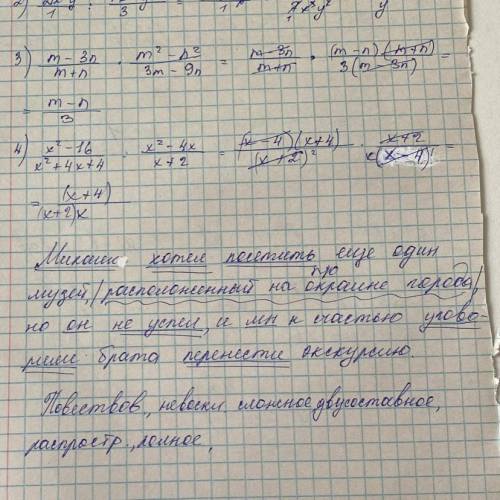 3) (m-3n)/(m+n) · (m²-n²)/(3m-9n) = (m-3n)/(m+n) · (m-n)(m+n)/3(m-3n) =
= (m-n)/3
4) (x²-16)/(x²+4x+4) : (x²-4x)/(x+2) = (x-4)(x+4)/(x+2)² · (x+2)/x(x-4) =
= (x+4)/(x+2)x
Михаил хотел посетить еще один
музей, расположенный на окраине города,
но он не успел, и мы к счастью угово-
рили брата перенести экскурсию.
Повествов., невоскл. сложное двусоставное,
распростр., полное,